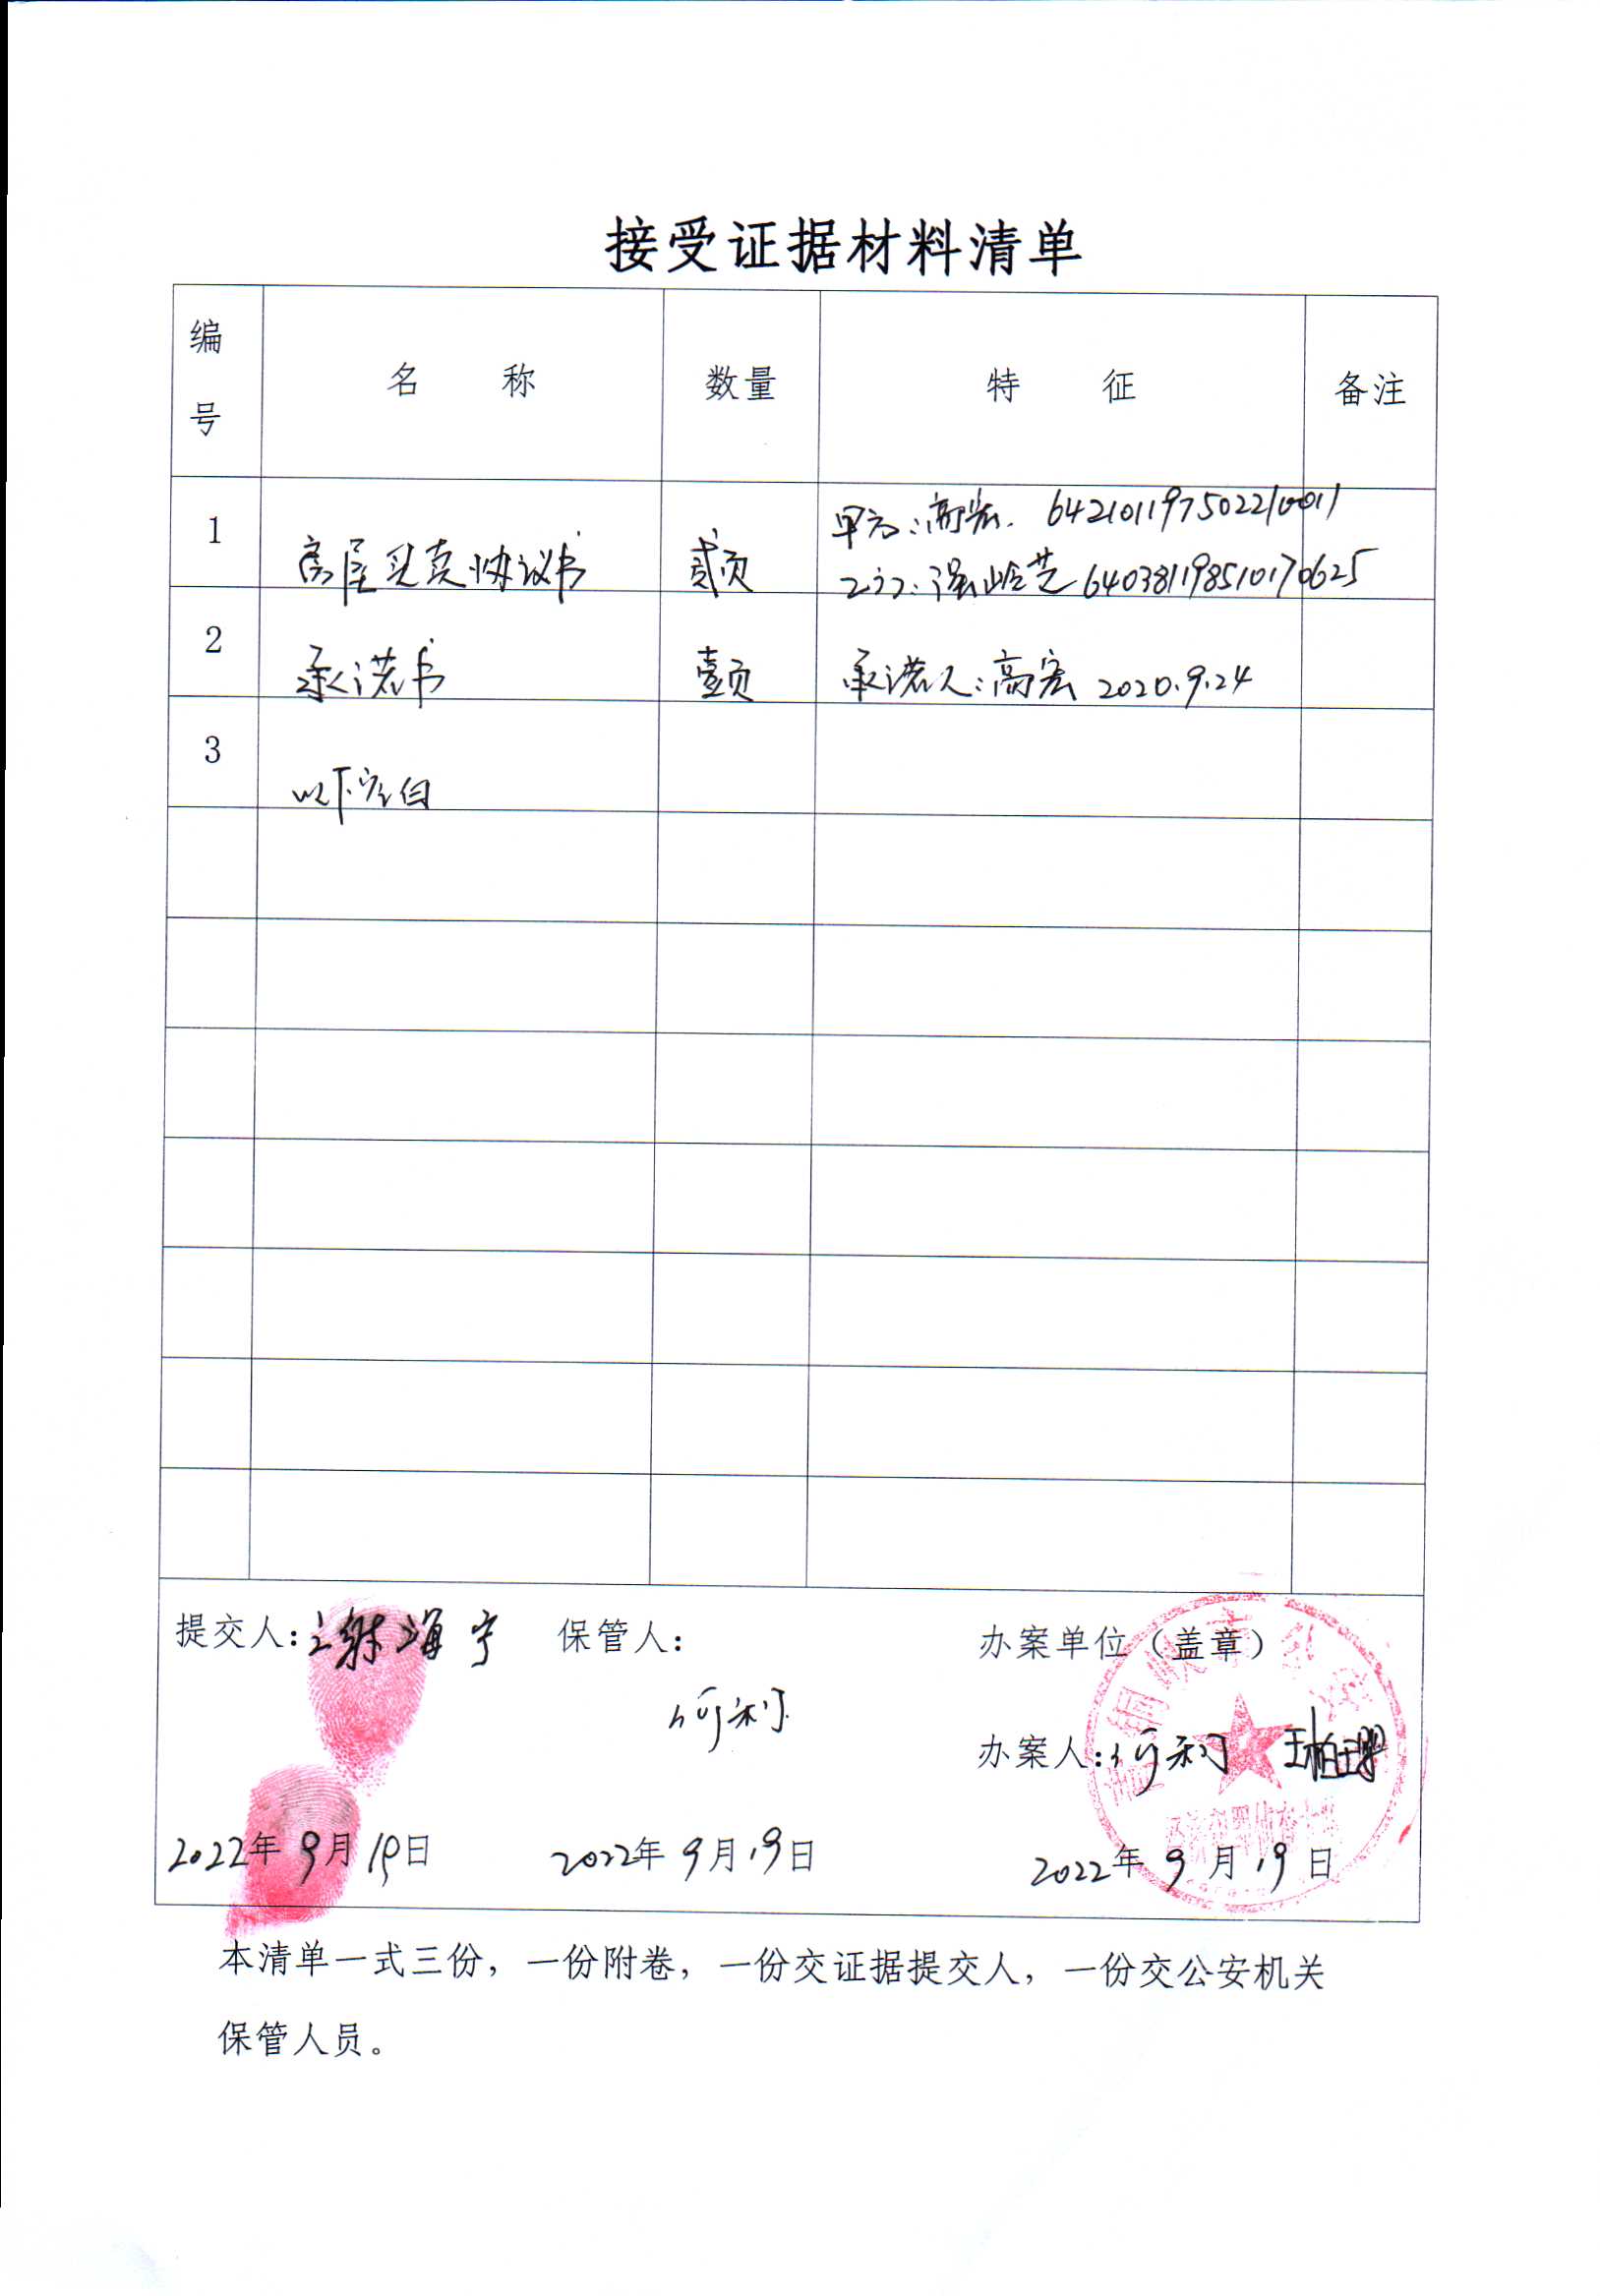 接受证据材料清单
编号 名 称 数量 特 征 备注
1 房屋买卖协议书 贰页 甲方:高宏. 642101197502210011
乙方:强岭芝 640381198510170625
2 承诺书 壹页 承诺人:高宏 2020.9.24
3 以下空白
提交人: 谢海宁 保管人: 办案单位（盖章）
何利
办案人: 何利
2022年9月19日 2022年9月19日 2022年9月19日
本清单一式三份，一份附卷，一份交证据提交人，一份交公安机关
保管人员。